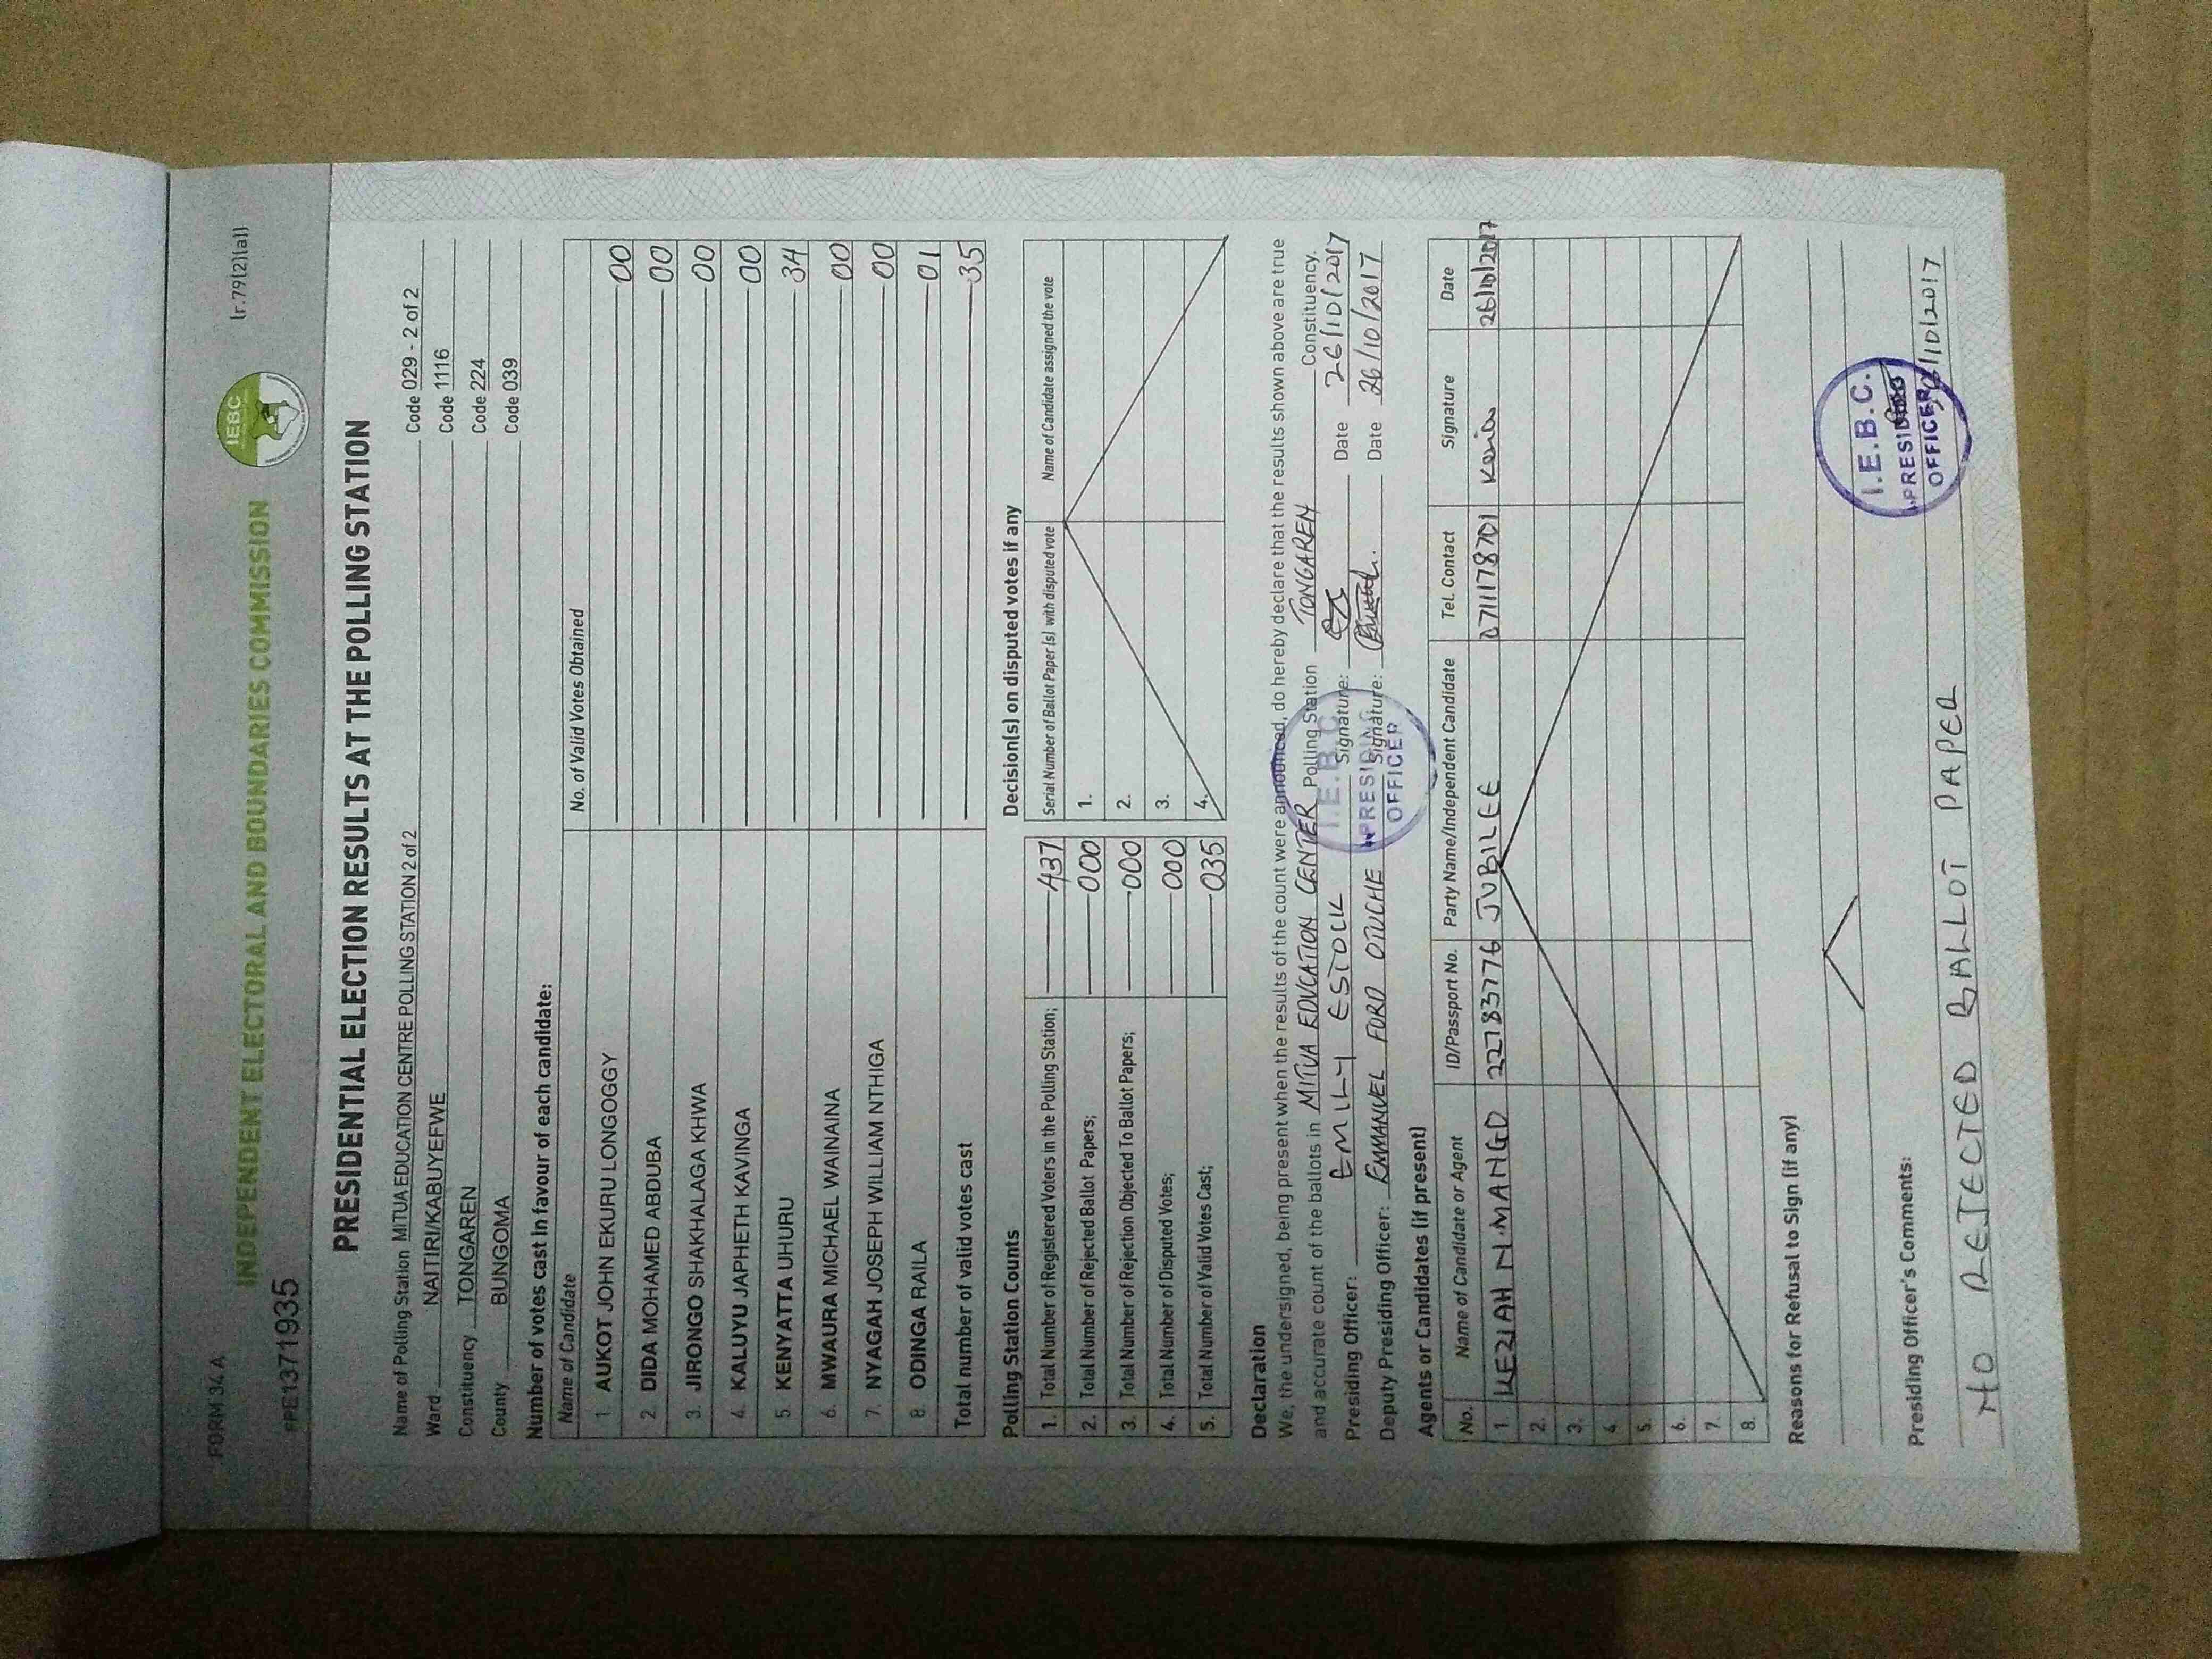 FORM 34A
(r.79(2)(a))
INDEPENDENT ELECTORAL AND BOUNDARIES COMMISSION
IEBC
PPE1371935
PRESIDENTIAL ELECTION RESULTS AT THE POLLING STATION
Name of Polling Station MITUA EDUCATION CENTRE POLLING STATION 2 of 2 Code 029 - 2 of 2
Ward NAITIRI/KABUYEFWE Code 1116
Constituency TONGAREN Code 224
County BUNGOMA Code 039
Number of votes cast in favour of each candidate:
Name of Candidate No. of Valid Votes Obtained
1 AUKOT JOHN EKURU LONGOGGY 00
2 DIDA MOHAMED ABDUBA 00
3. JIRONGO SHAKHALAGA KHWA 00
4. KALUYU JAPHETH KAVINGA 00
5. KENYATTA UHURU 34
6. MWAURA MICHAEL WAINAINA 00
7. NYAGAH JOSEPH WILLIAM NTHIGA 00
8. ODINGA RAILA 01
Total number of valid votes cast 35
Polling Station Counts
1. Total Number of Registered Voters in the Polling Station; 437
2. Total Number of Rejected Ballot Papers; 000
3. Total Number of Rejection Objected To Ballot Papers; 000
4. Total Number of Disputed Votes; 000
5. Total Number of Valid Votes Cast; 035
Decision(s) on disputed votes if any
Serial Number of Ballot Paper (s) with disputed vote Name of Candidate assigned the vote
1.
2.
3.
4.
Declaration
We, the undersigned, being present when the results of the count were announced, do hereby declare that the results shown above are true
and accurate count of the ballots in MITUA EDUCATION CENTER Polling Station TONGAREN Constituency.
Presiding Officer: EMILY ESTOCK Signature: Date 26/10/2017
Deputy Presiding Officer: EMMANUEL FORD OTUCHE Signature: Date 26/10/2017
I.E.B.C.
PRESIDING
OFFICER
Agents or Candidates (if present)
No. Name of Candidate or Agent ID/Passport No. Party Name/Independent Candidate Tel. Contact Signature Date
1. KEZIAH N. MANGO 22783776 JUBILEE 0711178701 26/10/2017
2.
3.
4
5.
6.
7.
8.
Reasons for Refusal to Sign (if any)
Presiding Officer's Comments:
NO REJECTED BALLOT PAPER
I.E.B.C.
PRESIDING
OFFICER
26/10/2017